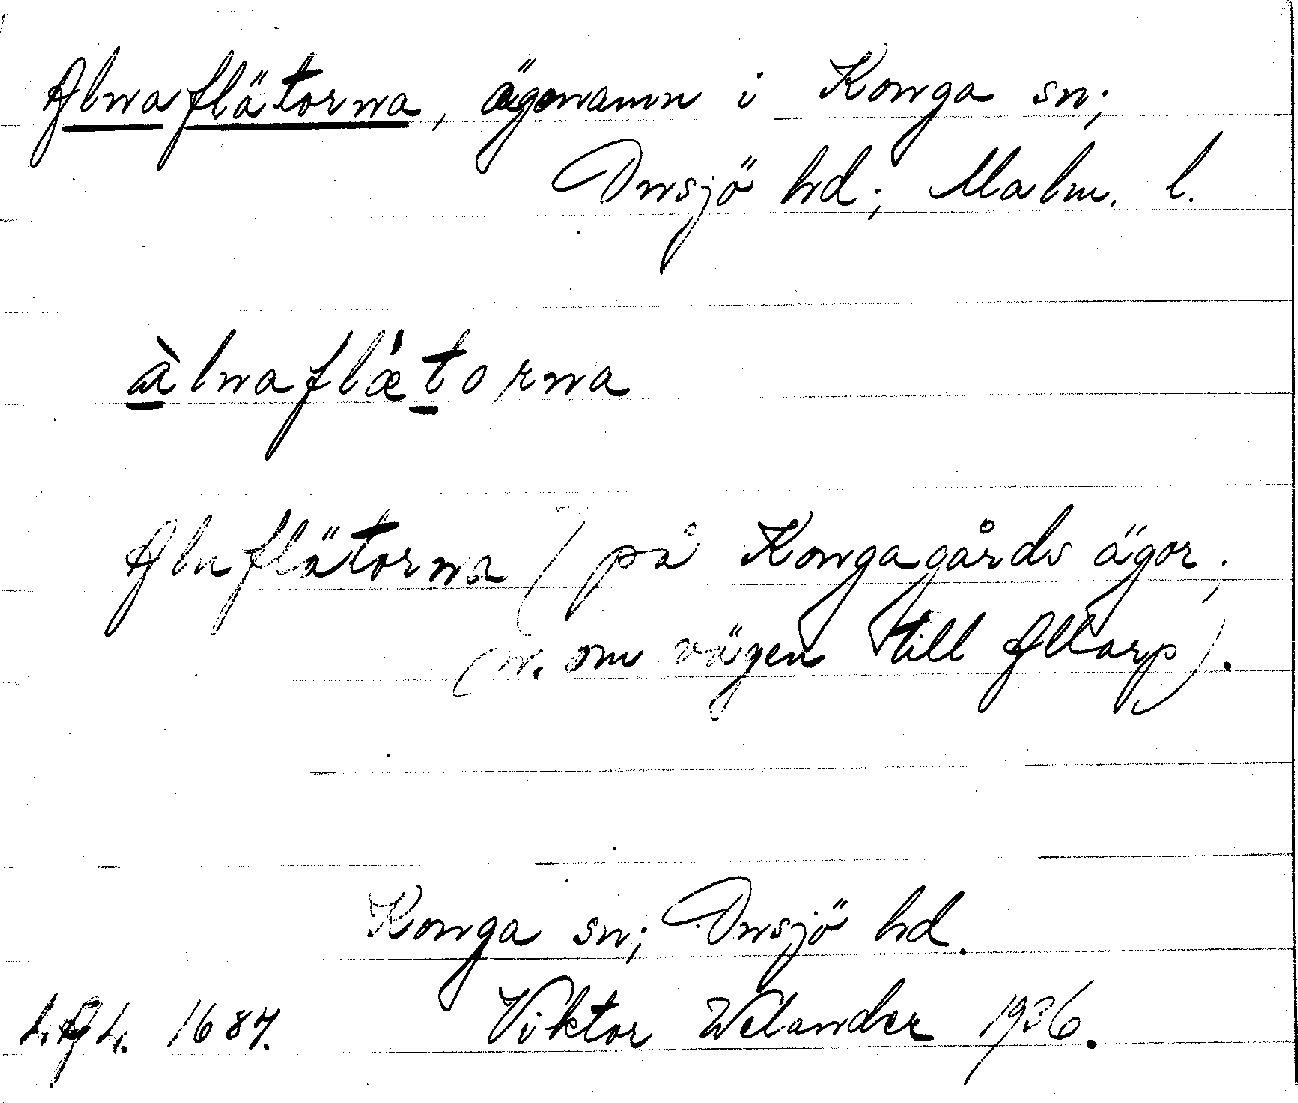 Alnaflätorna, ägonamn i Konga sn;
Onsjö hd; Malm. l.
àlnaflǽtorna
Alnflätorna (på Kongagårds ägor;
(n. om vägen till Allarp).
Konga sn; Onsjö hd.
L.A.L. 1687. Viktor Welander 1936.